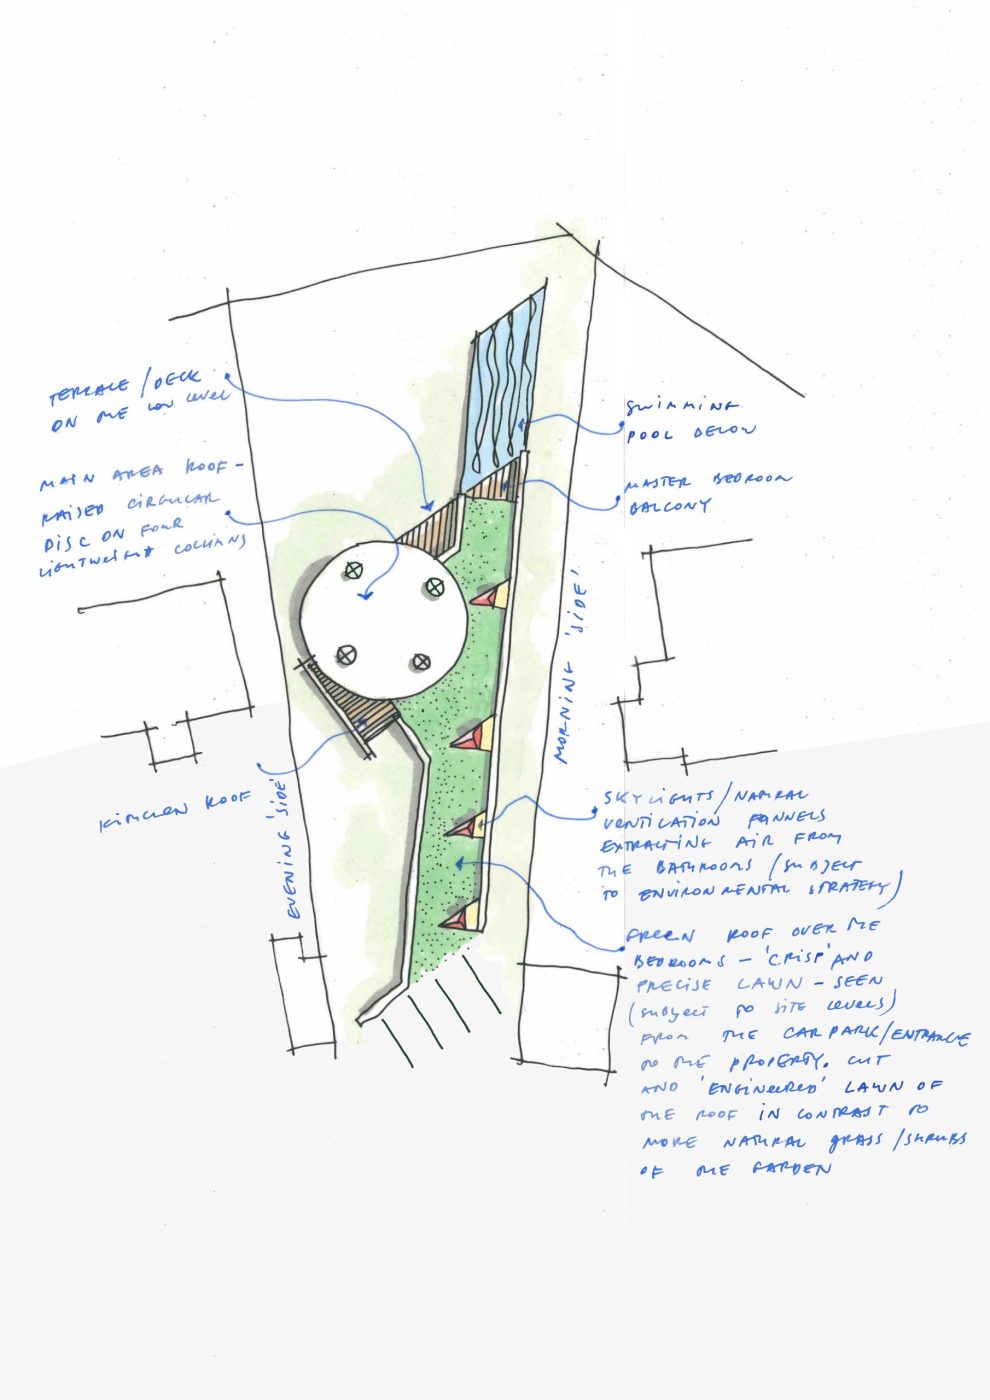 TERRACE/DECK
ON THE LOW LEVEL
MAIN AREA ROOF -
RAISED CIRCULAR
DISC ON FOUR
LIGHTWEIGHT COLUMNS
KITCHEN ROOF
EVENING 'SIDE'
MORNING 'SIDE'
SWIMMING
POOL BELOW
MASTER BEDROOM
BALCONY
SKYLIGHTS/NATURAL
VENTILATION FUNNELS
EXTRACTING AIR FROM
THE BATHROOMS (SUBJECT
TO ENVIRONMENTAL STRATEGY)
GREEN ROOF OVER THE
BEDROOMS - 'CRISP' AND
PRECISE LAWN - SEEN
(SUBJECT TO SITE LEVELS)
FROM THE CAR PARK/ENTRANCE
TO THE PROPERTY. CUT
AND 'ENGINEERED' LAWN OF
THE ROOF IN CONTRAST TO
MORE NATURAL GRASS/SHRUBS
OF THE GARDEN